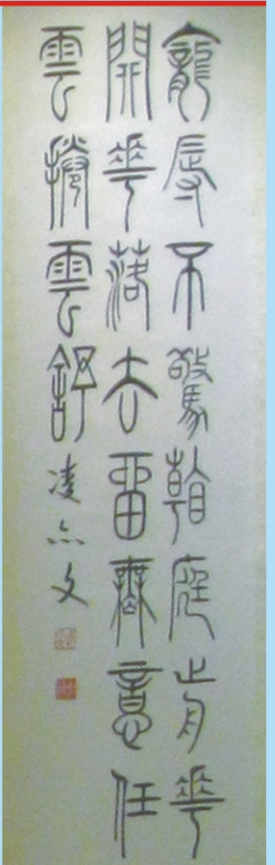 寵辱不驚看庭前花
開花落去留無意任
雲捲雲舒
凌亦文